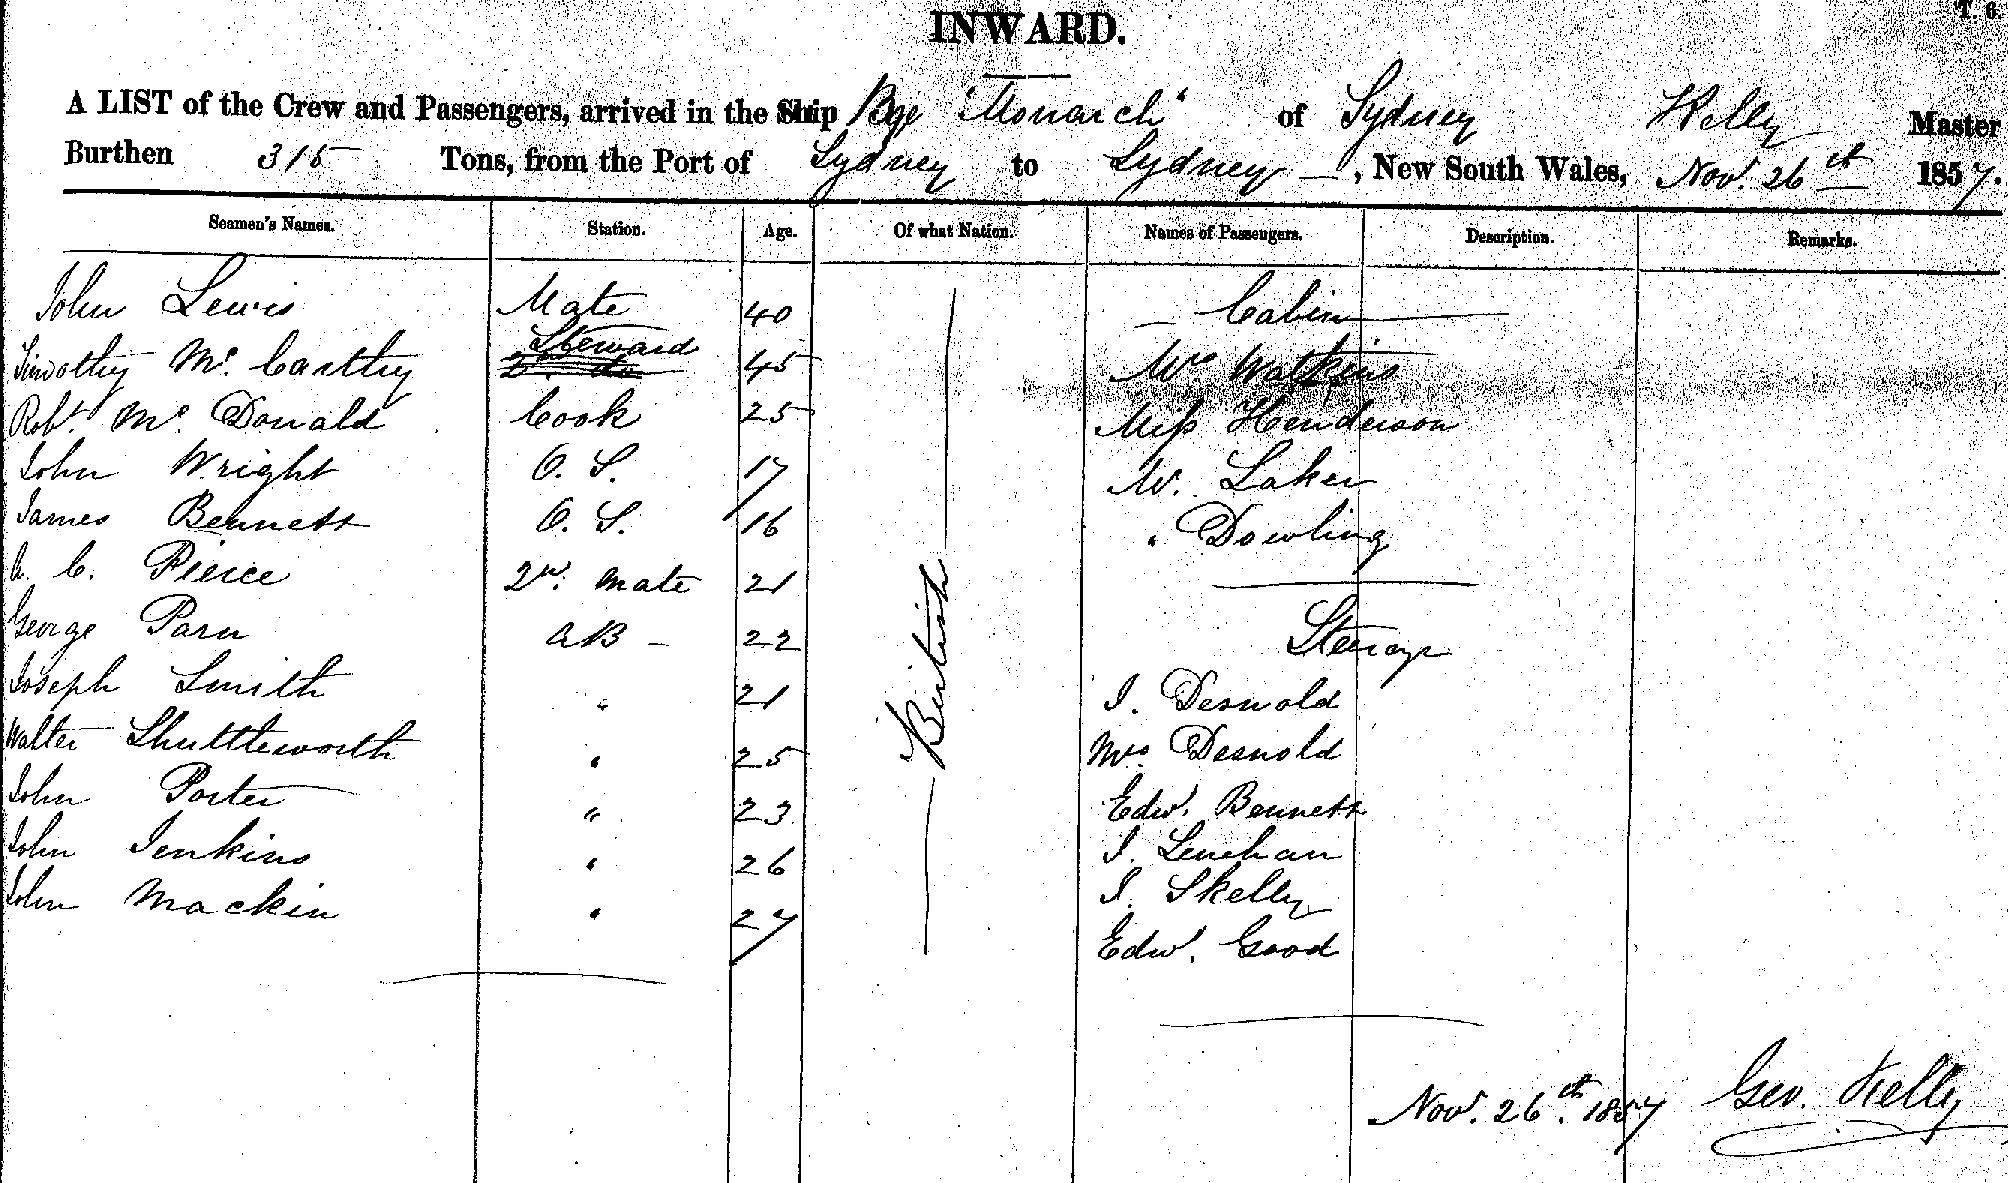 T. 6.
INWARD.
A LIST of the Crew and Passengers, arrived in the Ship Bqe "Monarch" of Sydney Kelly Master
Burthen 315 Tons, from the Port of Sydney to Sydney, New South Wales, Nov. 26th 1857.
Seamen's Names. Station. Age. Of what Nation. Names of Passengers. Description. Remarks.
John Lewis Mate 40 Cabin
Timothy Mc. Carthy Steward 45 Watkins
Robt. Mc. Donald Cook 25 Miss Henderson
John Wright O. S. 17 Mr. Laker
James Bennett O. S. 16 " Dowling
C. Pierce 2nd. Mate 21
George Parn AB - 22 Steerage
Joseph Smith " 21 J. Desnold
Walter Shuttleworth " 25 Mrs. Desnold
John Porter " 23 Edwd. Bennett
John Jenkins " 26 J. Lenehan
John Mackin " 27 J. Skelly
Edwd. Good
British
Nov. 26th. 1857 Geo. Kelly